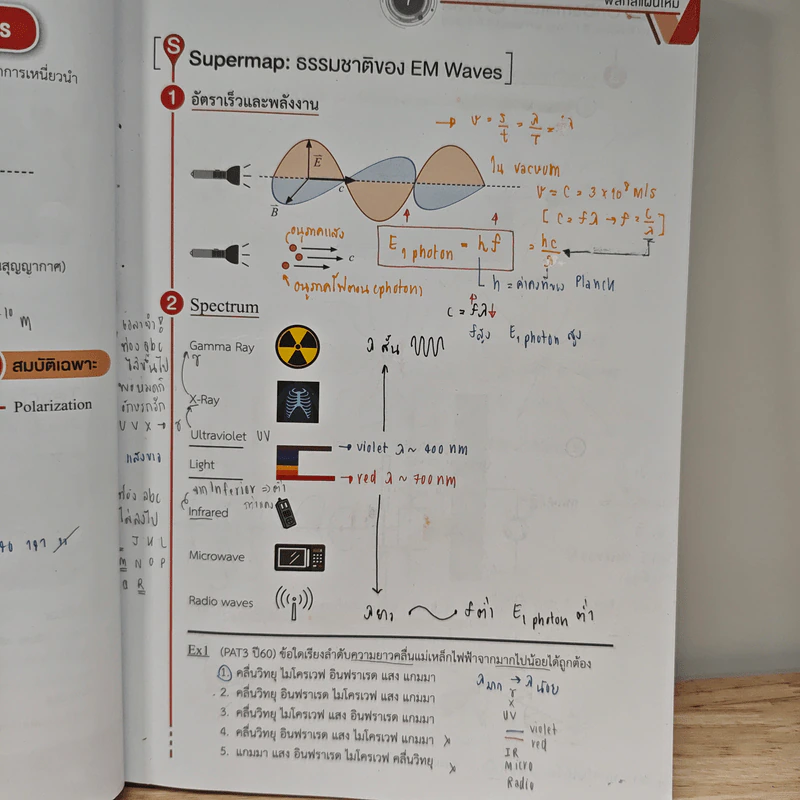 ฟิสิกส์แผนใหม่
การเหนี่ยวนำ
สุญญากาศ)
m
สมบัติเฉพาะ
Polarization
[S Supermap: ธรรมชาติของ EM Waves]
1 อัตราเร็วและพลังงาน
→ v = s/t = λ/T =
E
c
B
ใน vacuum
v = c = 3 × 10⁸ m/s
[ c = fλ → f = c/λ ]
อนุภาคแสง
c
E₁ photon = hf
= hc/λ
อนุภาคโฟตอน (photon)
h = ค่าคงที่ของ Planck
2 Spectrum
c = fλ
fสูง E₁ photon สูง
Gamma Ray
γ
λ สั้น
X-Ray
Ultraviolet UV
→ violet λ ~ 400 nm
Light
→ red λ ~ 700 nm
Infrared
Microwave
Radio waves
λยาว
fต่ำ E₁ photon ต่ำ
ท่อง abc
U V X → γ
ท่อง abc
J K L
M N O P
Q R
Ex1 (PAT3 ปี60) ข้อใดเรียงลำดับความยาวคลื่นแม่เหล็กไฟฟ้าจากมากไปน้อยได้ถูกต้อง
1. คลื่นวิทยุ ไมโครเวฟ อินฟราเรด แสง แกมมา
2. คลื่นวิทยุ อินฟราเรด ไมโครเวฟ แสง แกมมา
3. คลื่นวิทยุ ไมโครเวฟ แสง อินฟราเรด แกมมา
4. คลื่นวิทยุ แสง อินฟราเรด ไมโครเวฟ แกมมา
5. แกมมา แสง อินฟราเรด ไมโครเวฟ คลื่นวิทยุ
λมาก → λน้อย
γ
X
UV
violet
red
IR
Micro
Radio